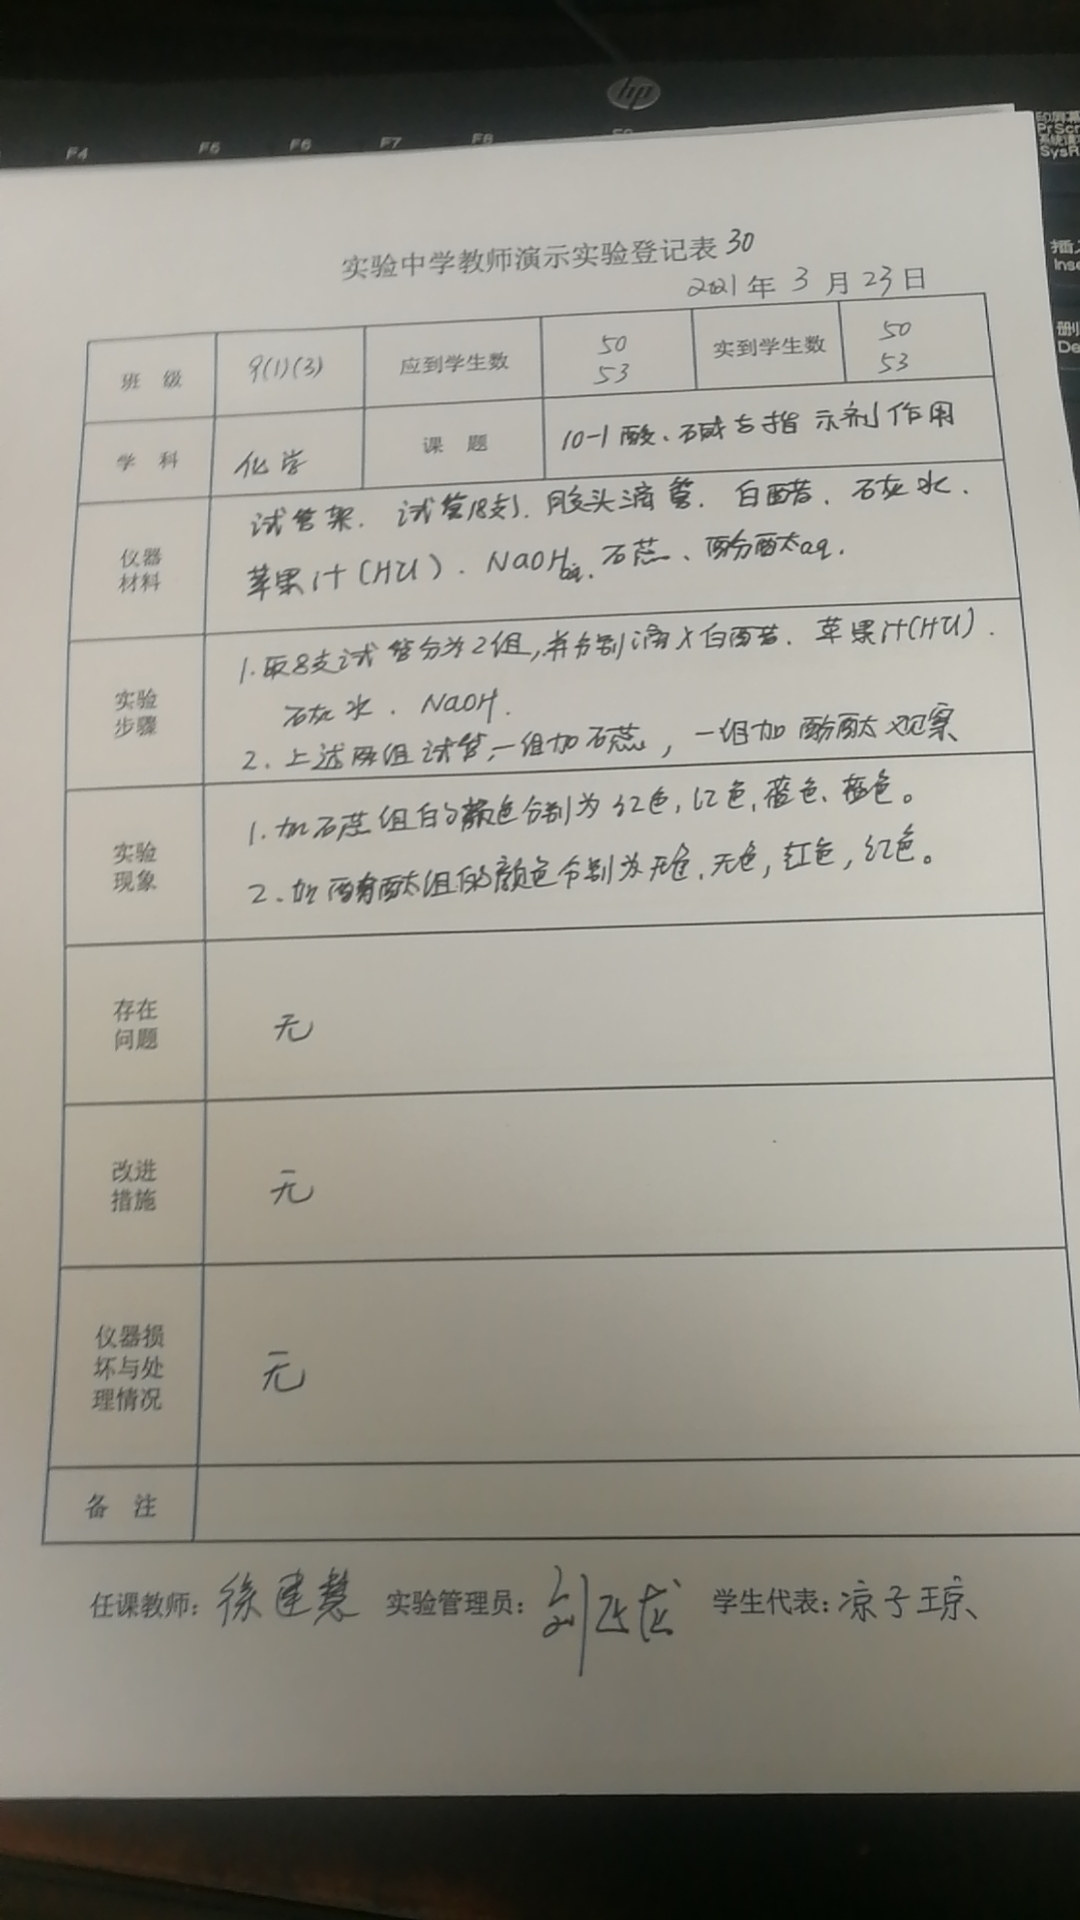 hp
F4 F5 F6 F7 F8
PrScr
SysR
插入
Inse
删
De
实验中学教师演示实验登记表 30
2021年 3 月 23 日
班 级 9(1)(3) 应到学生数 50 53 实到学生数 50 53
学 科 化学 课 题 10-1 酸、碱与指示剂作用
仪器材料
试管架. 试管(8支). 胶头滴管. 白醋. 石灰水.
苹果汁(HCl). NaOHaq. 石蕊、酚酞aq.
实验步骤
1.取8支试管分为2组,并分别滴入白醋. 苹果汁(HCl).
石灰水. NaOH.
2. 上述两组试管,一组加石蕊,一组加酚酞观察
实验现象
1.加石蕊组的颜色分别为红色,红色,蓝色、蓝色。
2.加酚酞组的颜色分别为无色.无色,红色,红色。
存在问题
无
改进措施
无
仪器损坏与处理情况
无
备 注
任课教师: 徐建慧 实验管理员: 刘飞龙 学生代表: 凉子琼